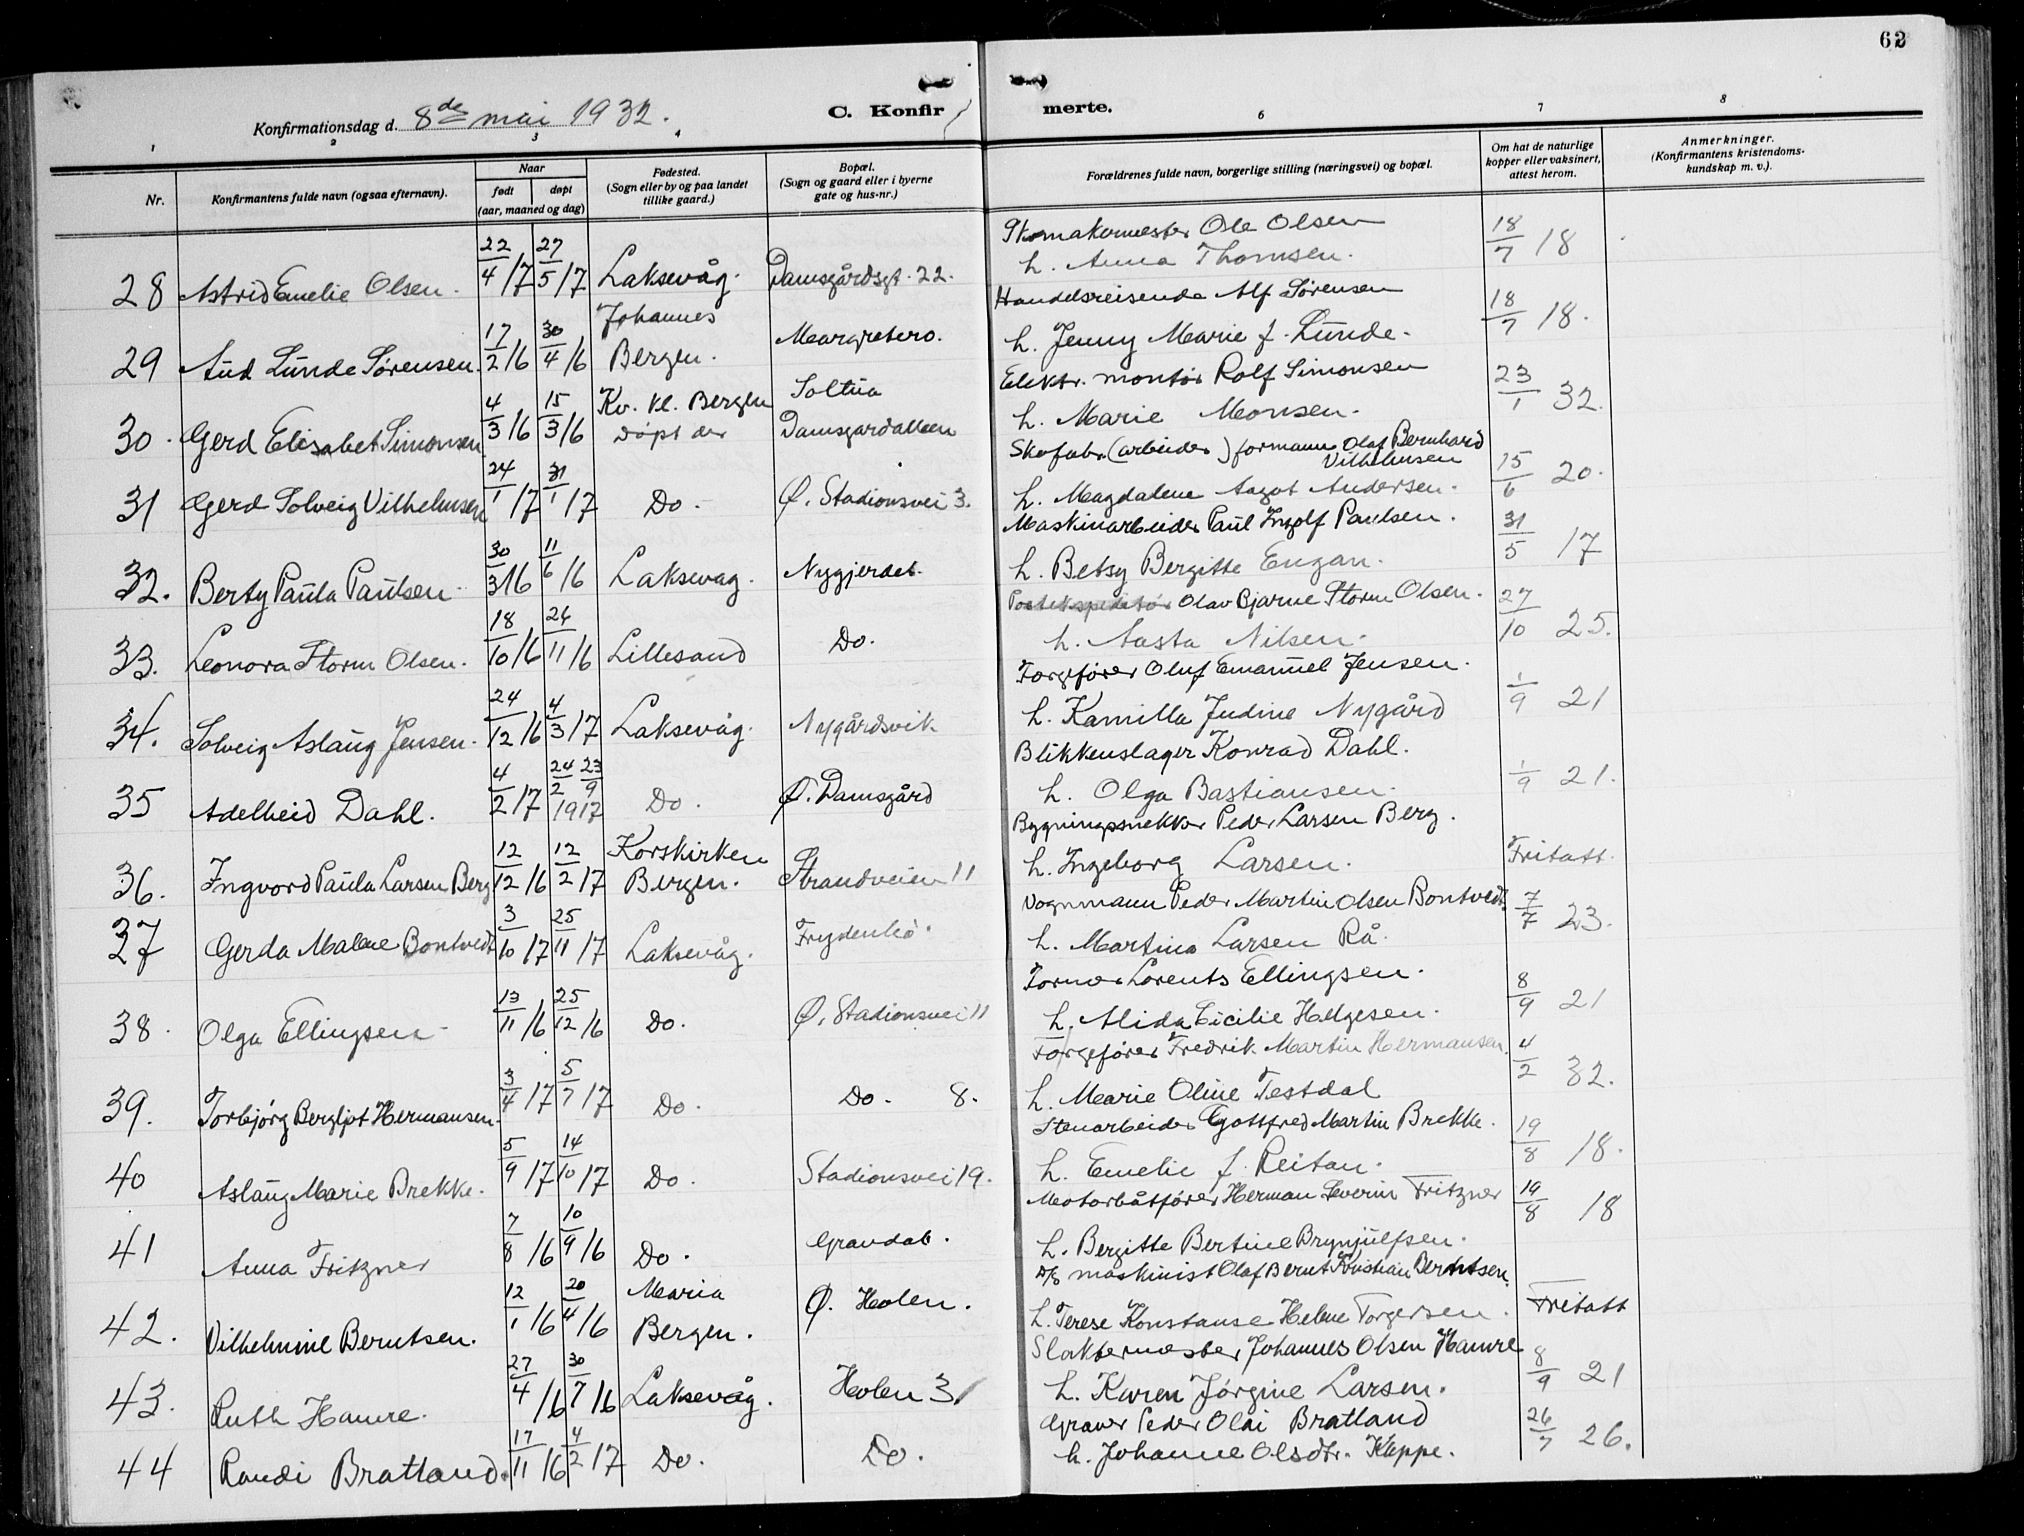 62
Konfirmationsdag d. 8de mai 1932.
C. Konfirmerte.
1 2 3 4 6 7 8
Nr.
Konfirmantens fulde navn (ogsaa efternavn).
Naar
født
døpt
(aar, maaned og dag)
Fødested.
(Sogn eller by og paa landet
tillike gaard.)
Bopæl.
(Sogn og gaard eller i byerne
gate og hus-nr.)
Forældrenes fulde navn, borgerlige stilling (næringsvei) og bopæl.
Om hat de naturlige
kopper eller vaksinert,
attest herom.
Anmerkninger.
(Konfirmantens kristendoms-
kundskap m. v.).
28 Astrid Emelie Olsen. 22/4/17 27/5/17 Laksevåg. Damsgårdsgt. 22. Skomakermester Ole Olsen
h. Anna Thomsen. 18/7 18
29 Aud Lunde Sørensen. 17/2/16 30/4/16 Johannes Bergen. Margretero. Handelsreisende Alf Sørensen
h. Jenny Marie f. Lunde. 18/7 18.
30. Gerd Elisabet Simonsen 4/3/16 15/3/16 Kv. kl. Bergen Døpt der Soltua Damsgardalleen Elektr. montør Rolf Simonsen
h. Marie Monsen. 23/1 32.
31 Gerd Solveig Vilhelmsen 24/1/17 31/1/17 Do. Ø. Stadionsvei 3. Skofabr. (arbeider) formann Olaf Bernhard Vilhelmsen
h. Magdalene Aagot Andersen. 15/6 20.
32. Berty Paula Paulsen. 30/3/16 11/6/16 Laksevag. Nygjerdet. Maskinarbeider Paul Ingolf Paulsen.
h. Betsy Bergitte Engan. 31/5 17
33. Leonora Storm Olsen. 18/10/16 26/11/16 Lillesand Do. Postekspeditør Olav Bjarne Storm Olsen.
h. Aasta Nilsen. 27/10 25.
34. Solveig Aslaug Jensen. 24/12/16 4/3/17 Laksevåg. Nygårdsvik Forgefører Oluf Emanuel Jensen.
h. Kamilla Judine Nygård 1/9 21
35 Adelheid Dahl. 4/2/17 24/2 23/9 1917 Do. Ø. Damsgård Blikkenslager Konrad Dahl.
h. Olga Bastiansen. 1/9 21.
36. Ingvord Paula Larsen Berg 12/12/16 12/2/17 Korskirken Bergen. Strandveien 11 Bygningssnekker Peder Larsen Berg.
h. Ingeborg Larsen. Fritatt.
37 Gerda Malene Bontvedt 3/10/17 25/11/17 Laksevåg. Frydenbø. Vognmann Peder Martin Olsen Bontvedt.
h. Martina Larsen Rå. 7/7 23.
38. Olga Ellingsen 13/11/16 25/12/16 Do. Ø. Stadionsvei 11 Former Lorents Ellingsen.
h. Alida Cicilie Helgesen. 8/9 21
39. Torbjørg Bergljot Hermansen. 3/4/17 5/7/17 Do. Do. 8. Forgefører Fredrik Martin Hermansen.
h. Marie Oline Testdal 4/2 32.
40 Aslaug Marie Brekke. 5/9/17 14/10/17 Do. Stadionsvei 19. Stenarbeider Gottfred Martin Brekke.
h. Emelie f. Reitan. 19/8 18.
41 Anna Fritzner 7/8/16 10/9/16 Do. Gravdal. Motorbåtfører Herman Severin Fritzner
h. Bergitte Bertine Brynjulfsen. 19/8 18
42. Vilhelmine Berntsen. 12/1/16 20/4/16 Maria Bergen. Ø. Holen. D/s maskinist Olaf Bernt Kristian Berntsen.
h. Terese Konstanse Helene Torgersen. Fritatt
43. Ruth Hamre. 27/4/16 30/7/16 Laksevåg. Holen 31 Slaktermester Johannes Olsen Hamre
h. Karen Jørgine Larsen. 8/9 21
44 Randi Bratland. 17/11/16 4/2/17 Do. Do. Graver Peder Olai Bratland
h. Johanne Olsdtr. Kleppe. 26/7 26.